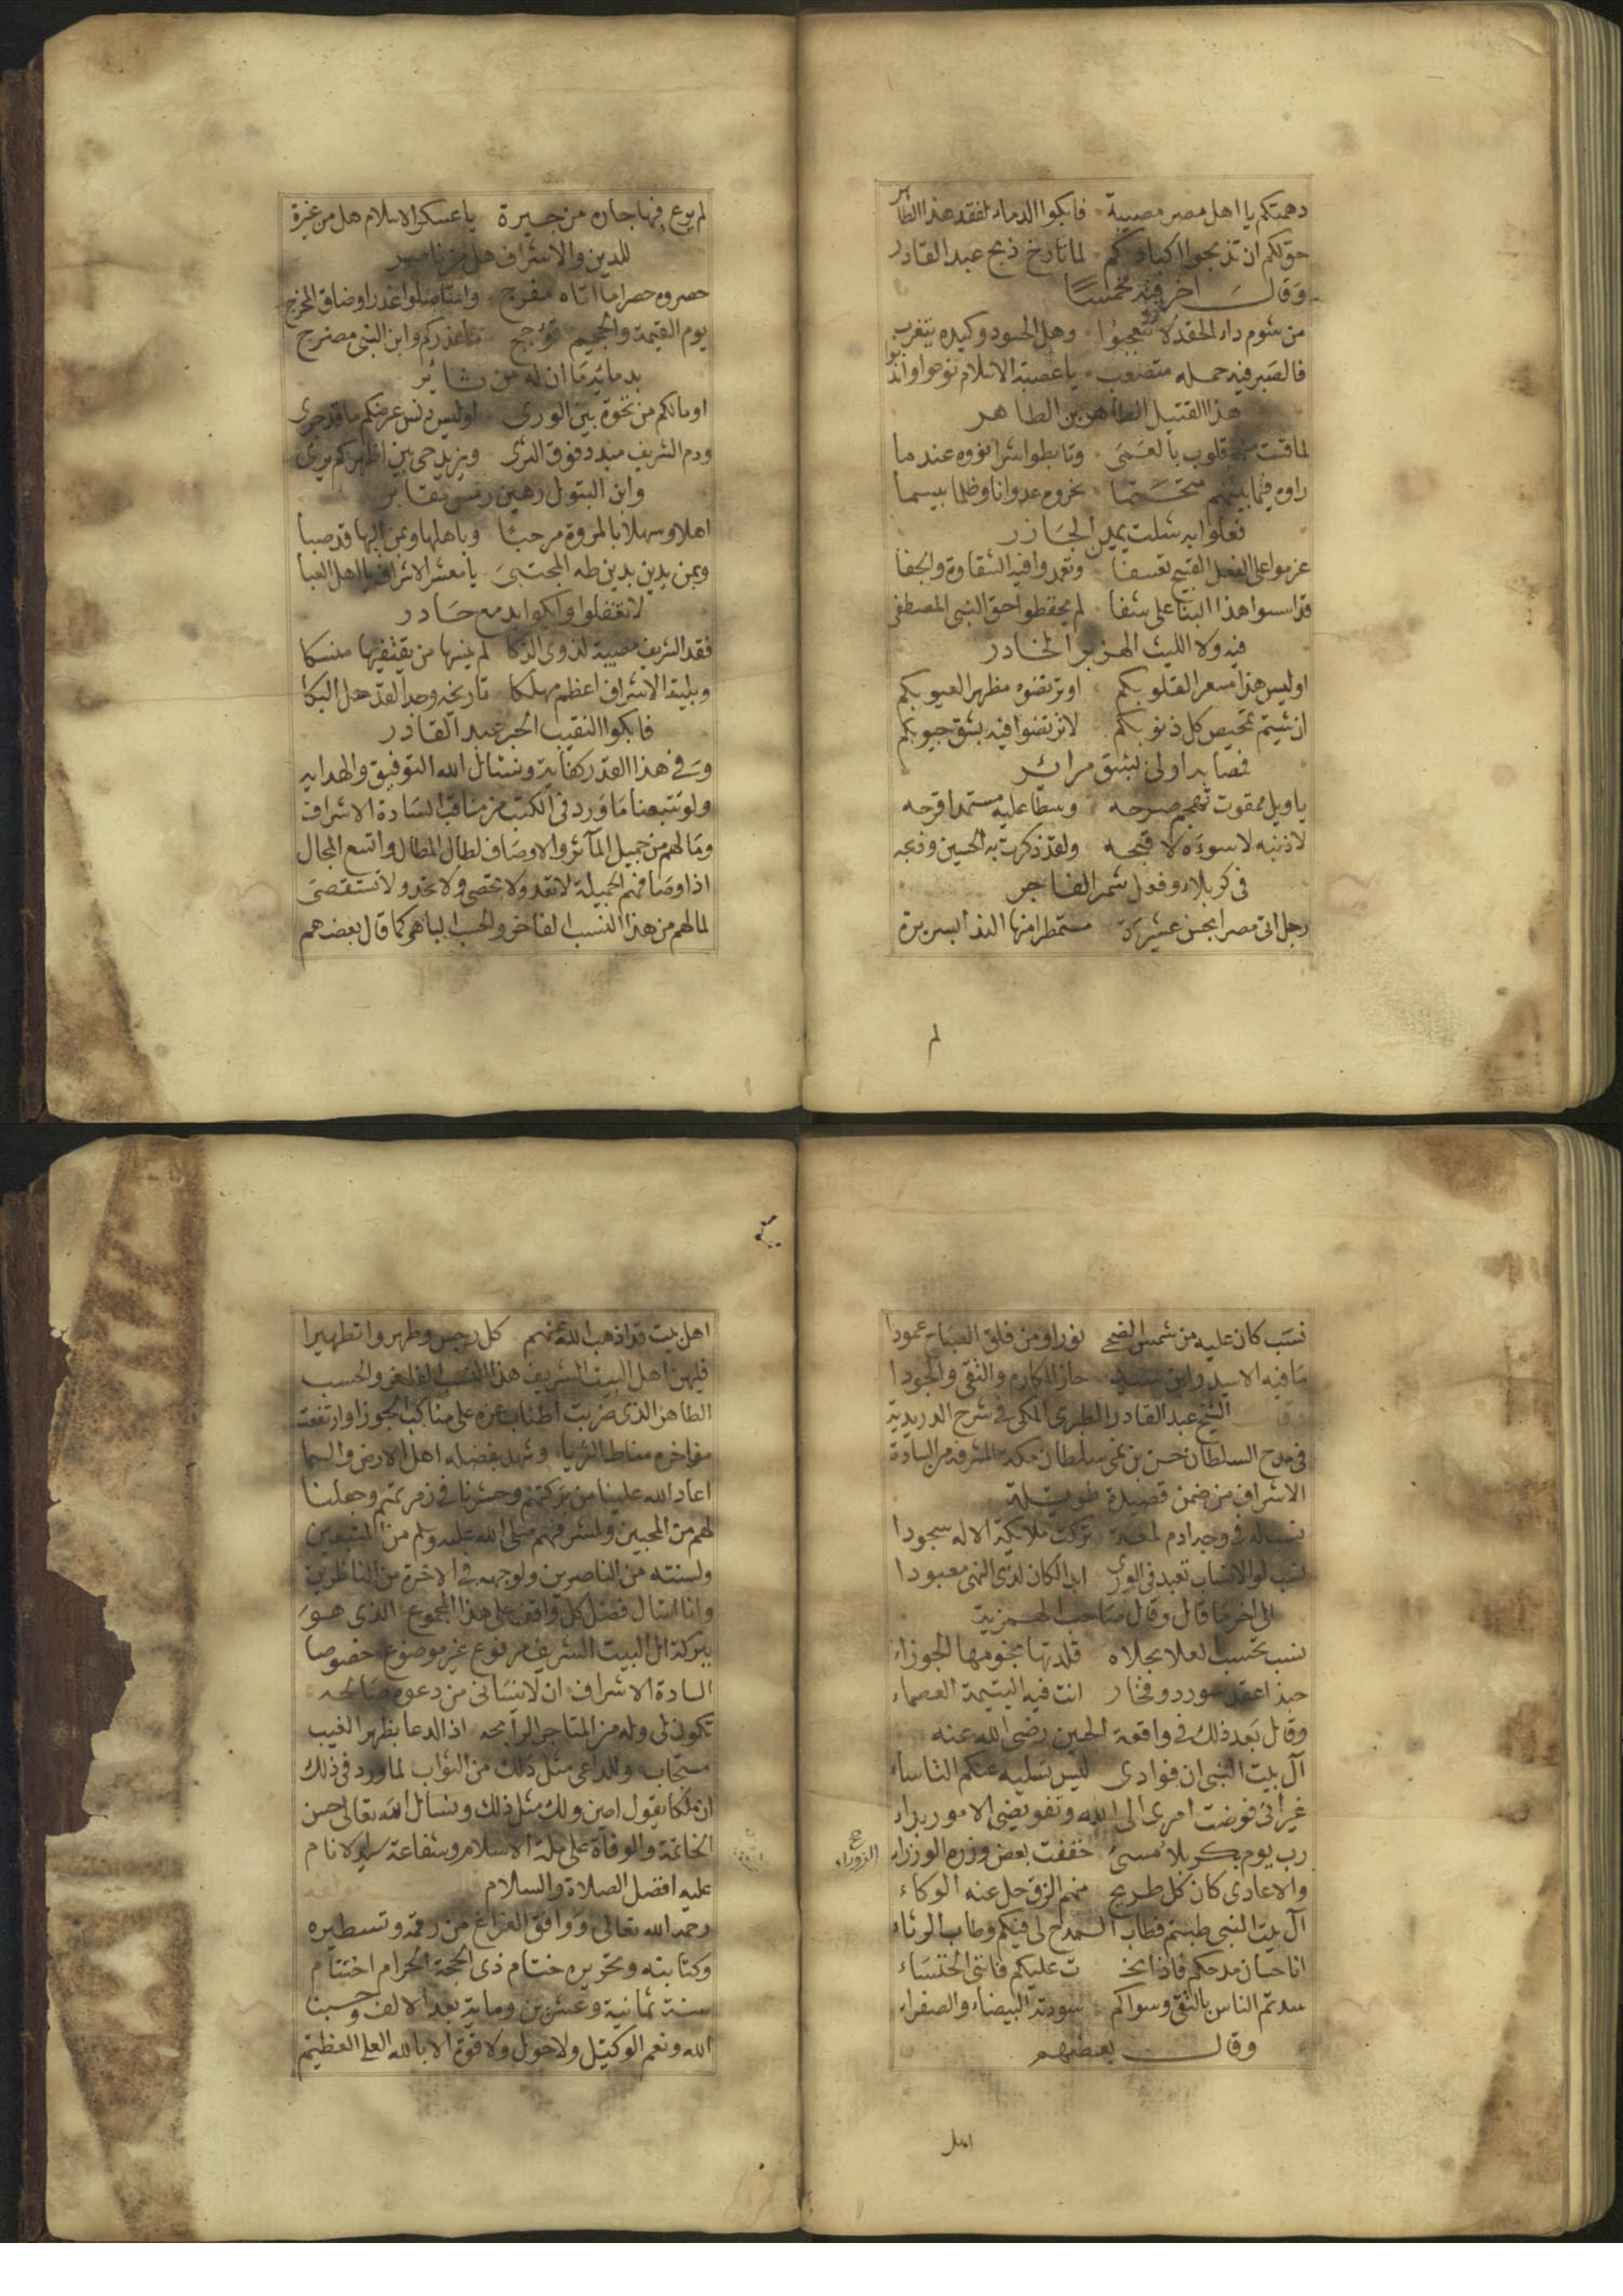 دهمتكم يا اهل مصر مصيبة فابكوا الدماء لفقد هذا الطاهر
حق لكم ان تذبحوا اكبادكم لما تارخ ذبح عبد القادر
وقال اخر فيه مخمسا
من شوم داء الحقد لا تتعجبوا وهل الحسود وكيده يتغرب
فالصبر فيه حمله متصعب يا عصبة الاسلام نوحوا واندبوا
هذا القتيل الطاهر بن الطاهر
لما قست قلوب بالعمى وتابطوا شرا نووه عندما
راوه فيما بينهم نحروه عدوانا وظلما بيسما
فعلوا به شلت يمين الجازر
عزموا على الفعل القبيح تعسفا وتعمدوا فيه الشقاوة والجفا
قد اسسوا هذا البنا على شفا لم يحفظوا حق النبي المصطفى
فيه ولا الليث الهزبر الخادر
اوليس هذا مسعر القلوبكم او ترتضوه مظهر العيوبكم
ان شيتم تمحيص كل ذنوبكم لا ترتضوا فيه بشق جيوبكم
فمصابه اولى بشق مرائر
يا ويل ممقوت تهجم صرحه وسطا عليه مستمدا قرحه
لا ذنبه لا سوءة لا قبحه ولقد ذكرت به الحسين وذبحه
في كربلاء وفعل شمر الفاجر
رجل اتى مصرا بحسن عشيرة مستمطرا منها الندا بسريرة
لم
لم يرع فيها جان من جيرة يا عسكر الاسلام هل من غيرة
للدين والاشراف هل من ناصر
حصروه حصرا ما اتاه مفرج واستاصلوا غدرا وضاق المخرج
يوم القيمة والجحيم تؤجج ما عذركم وابن النبي مضرج
بدمائه ما ان له من ثائر
اومالكم من نخوة بين الورى اوليس دنس عرضكم ما قد جرى
ودم الشريف مبدد فوق الثرى ويزيد حي بين اظهركم يرى
وابن البتول رهين رمس مقابر
اهلا وسهلا بالمروة مرحبا وباهلها وبمن اليها قد صبا
وبمن يدين بدين طه المجتبى يا معشر الاشراف يا اهل العبا
لا تغفلوا وابكوا بدمع حادر
فقد الشريف مصيبة لذوي الذكا لم ينسها من يقتفيها منسكا
وبلية الاشراف اعظم مهلكا تاريخه وجد لقد حل البكا
فابكوا النقيب الحبر عبد القادر
وفي هذا القدر كفاية ونسئال الله التوفيق والهدايه
ولو تتبعنا ما ورد في الكتب من مناقب السادة الاشراف
وما لهم من جميل المآثر والاوصاف لطال المطال واتسع المجال
اذ اوصافهم الجميلة لا تعد ولا تحصى ولا تحد ولا تستقصى
لما لهم من هذا النسب الفاخر والحسب الباهر كما قال بعضهم
نسب كان عليه من شمس الضحى نورا ومن فلق الصباح عمودا
ما فيه الا سيد وابن سيد حاز المكارم والتقى والجودا
وقال الشيخ عبد القادر الطبري المكي في شرح الدريدية
في مدح السلطان حسن بن نمي سلطان مكة المشرفة من السادة
الاشراف من ضمن قصيدة طويلة
نسب له في وجه ادم لمعة تركت ملايكة الاله سجودا
نسب لو الانساب تعبد في الورى ابدا لكان لذي النهى معبودا
الى اخر ما قال وقال صاحب الهمزية
نسب تحسب لعلا بحلاه قلدتها نجومها الجوزاء
حبذا عقد سودد وفخار انت فيه اليتيمة العصماء
وقال بعد ذلك في واقعة الحسين رضي الله عنه
آل بيت النبي ان فوادي ليس تسليه عنكم التاساء
غير اني فوضت امري الى الله وتفويضي الامور براء
رب يوم بكربلا مسئ خففت بعض وزره الوزراء
الزوراء
والاعادي كان كل طريح منهم الزق حل عنه الوكاء
آل بيت النبي طبتم فطاب المدح لي فيكم وطاب الرثاء
انا حسان مدحكم فاذا نحت عليكم فانني الخنساء
سدتم الناس بالتقى وسواكم سودته البيضاء والصفراء
وقال بعضهم
اهل
اهل بيت قد اذهب الله عنهم كل رجس وطهروا تطهيرا
فليهن اهل البيت الشريف هذا النسب الفاخر والحسب
الطاهر الذي ضربت اطناب عزه على مناكب الجوزا وارتفعت
مفاخره مناط الثريا وشهد بفضله اهل الارض والسما
اعاد الله علينا من بركتهم وحشرنا في زمرتهم وجعلنا
لهم من المحبين ولمشرفهم صلى الله عليه وسلم من المتبعين
ولسنته من الناصرين ولوجهه في الاخرة من الناظرين
وانا اسئال فضل كل واقف على هذا المجموع الذي هو
ببركة ال البيت الشريف مرفوع غير موضوع خصوصا
السادة الاشراف ان لا ينساني من دعوة صالحه
تكون لي وله من المتاجر الرابحه اذ الدعا بظهر الغيب
مستجاب وللداعي مثل ذلك من الثواب لما ورد في ذلك
ان ملكا يقول امين ولك مثل ذلك ونسئال الله تعالى حسن
الخاتمة والوفاة على ملة الاسلام وشفاعة سيد الانام
عليه افضل الصلاة والسلام
رحمه الله تعالى ووافق الفراغ من رقمه وتسطيره
وكتابته وتحريره ختام ذي الحجة الحرام اختتام
سنة ثمانية وعشرين وماية بعد الالف وحسبنا
الله ونعم الوكيل ولا حول ولا قوة الا بالله العلي العظيم